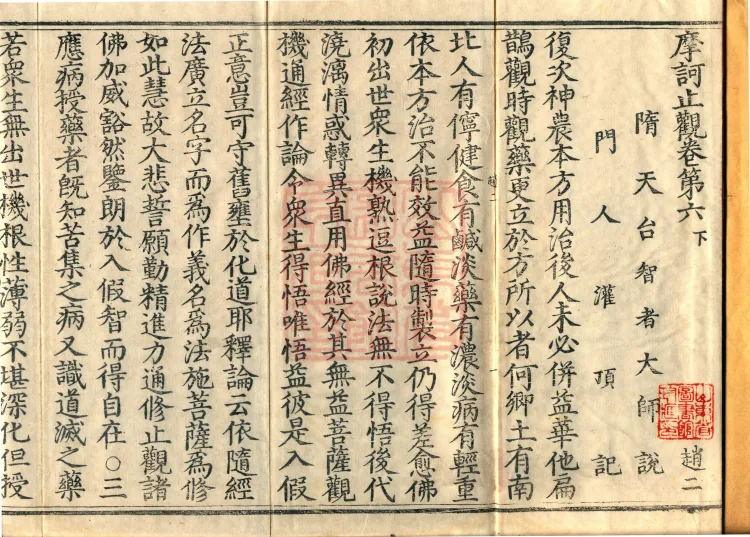 摩訶止觀卷第六下
趙二
隋天台智者大師說
門人灌頂記
復次神農本方用治後人未必併益華他扁
鵲觀時觀藥更立於方所以者何鄉土有南
北人有儜健食有鹹淡藥有濃淡病有輕重
依本方治不能效益隨時製立仍得差愈佛
初出世衆生機熟逗根說法無不得悟後代
澆漓情惑轉異直用佛經於其無益菩薩觀
機通經作論令衆生得悟唯悟益彼是入假
正意豈可守舊壅於化道耶釋論云依隨經
法廣立名字而爲作義名爲法施菩薩爲修
如此慧故大悲誓願勤精進力通修止觀諸
佛加威豁然鑒朗於入假智而得自在○三
應病授藥者旣知苦集之病又識道滅之藥
若衆生無出世機根性薄弱不堪深化但授
趙二